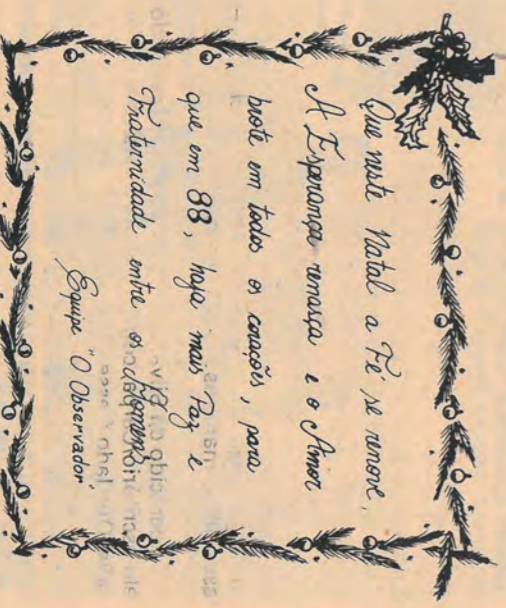 Que neste Natal a Fé se renove,
A Esperança renasça e o Amor
brote em todos os corações, para
que em 88, haja mais Paz e
Fraternidade entre os Homens.
Equipe "O Observador"